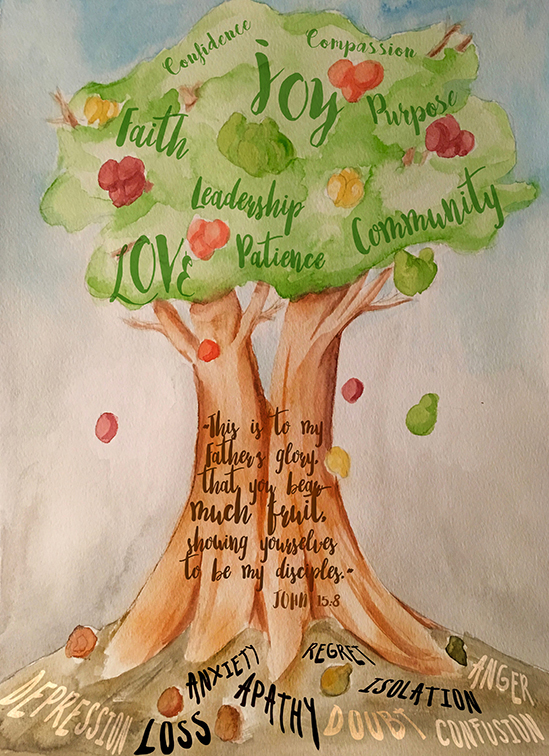 Confidence
Compassion
joy
Purpose
Faith
Leadership
Community
LOVE
Patience
"This is to my
Father's glory,
that you bear
much fruit,
showing yourselves
to be my disciples."
JOHN 15:8
ANXIETY
REGRET
ANGER
DEPRESSION
LOSS
APATHY
DOUBT
ISOLATION
CONFUSION